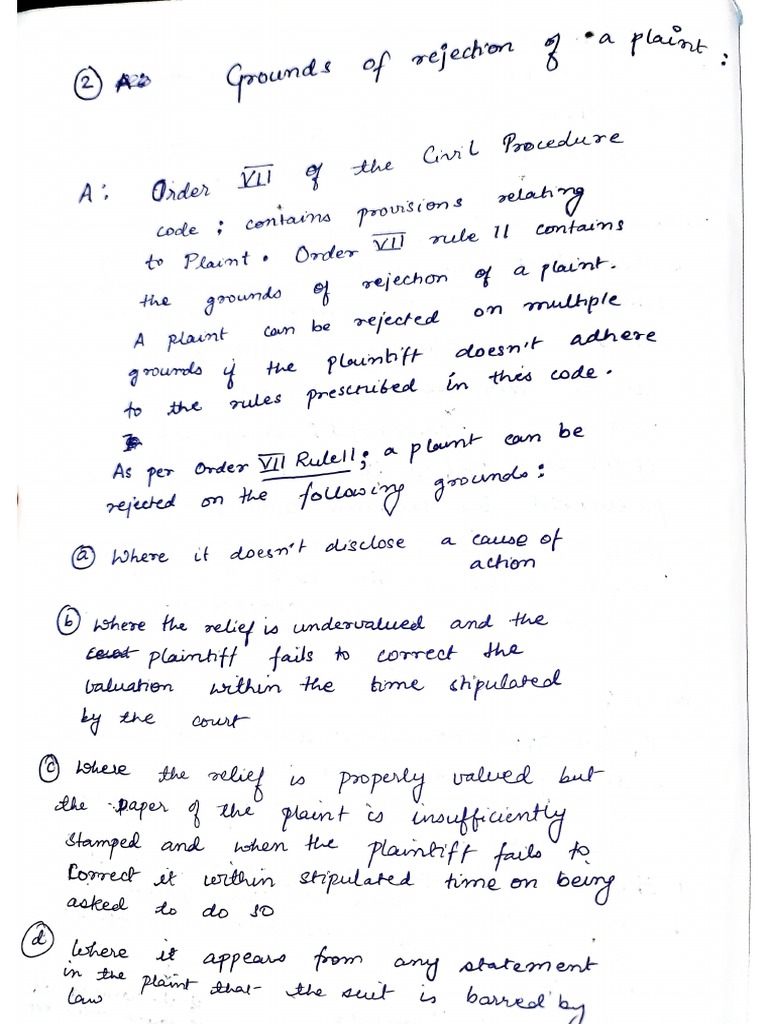 ② A: Grounds of rejection of a plaint:
A: Order VII of the Civil Procedure
code; contains provisions relating
to Plaint. Order VII rule 11 contains
the grounds of rejection of a plaint.
A plaint can be rejected on multiple
grounds if the plaintiff doesn't adhere
to the rules prescribed in this code.
As per Order VII Rule 11; a plaint can be
rejected on the following grounds:
ⓐ Where it doesn't disclose a cause of
action
ⓑ Where the relief is undervalued and the
court plaintiff fails to correct the
valuation within the time stipulated
by the court
ⓒ Where the relief is properly valued but
the paper of the plaint is insufficiently
stamped and when the plaintiff fails to
correct it within stipulated time on being
asked to do so
ⓓ Where it appears from any statement
in the plaint that the suit is barred by
law